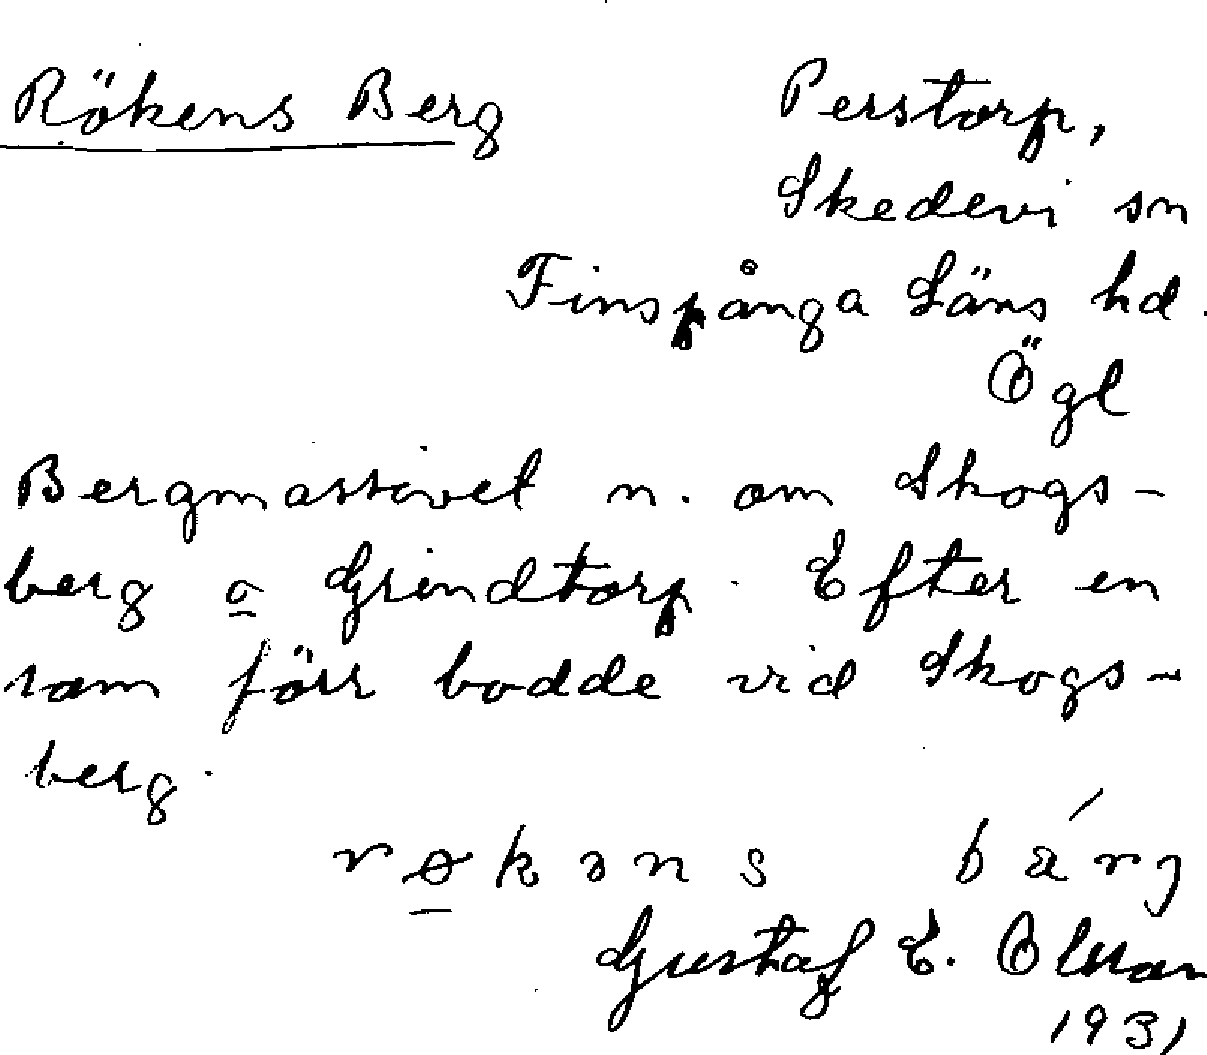 Rökens Berg
Perstorp,
Skedevi sn
Finspånga Läns hd.
Ögl
Bergmassivet n. om Skogs-
berg o Grindtorp. Efter en
som förr bodde vid Skogs-
berg.
røkəns bárg
Gustaf E. Olsson
1931